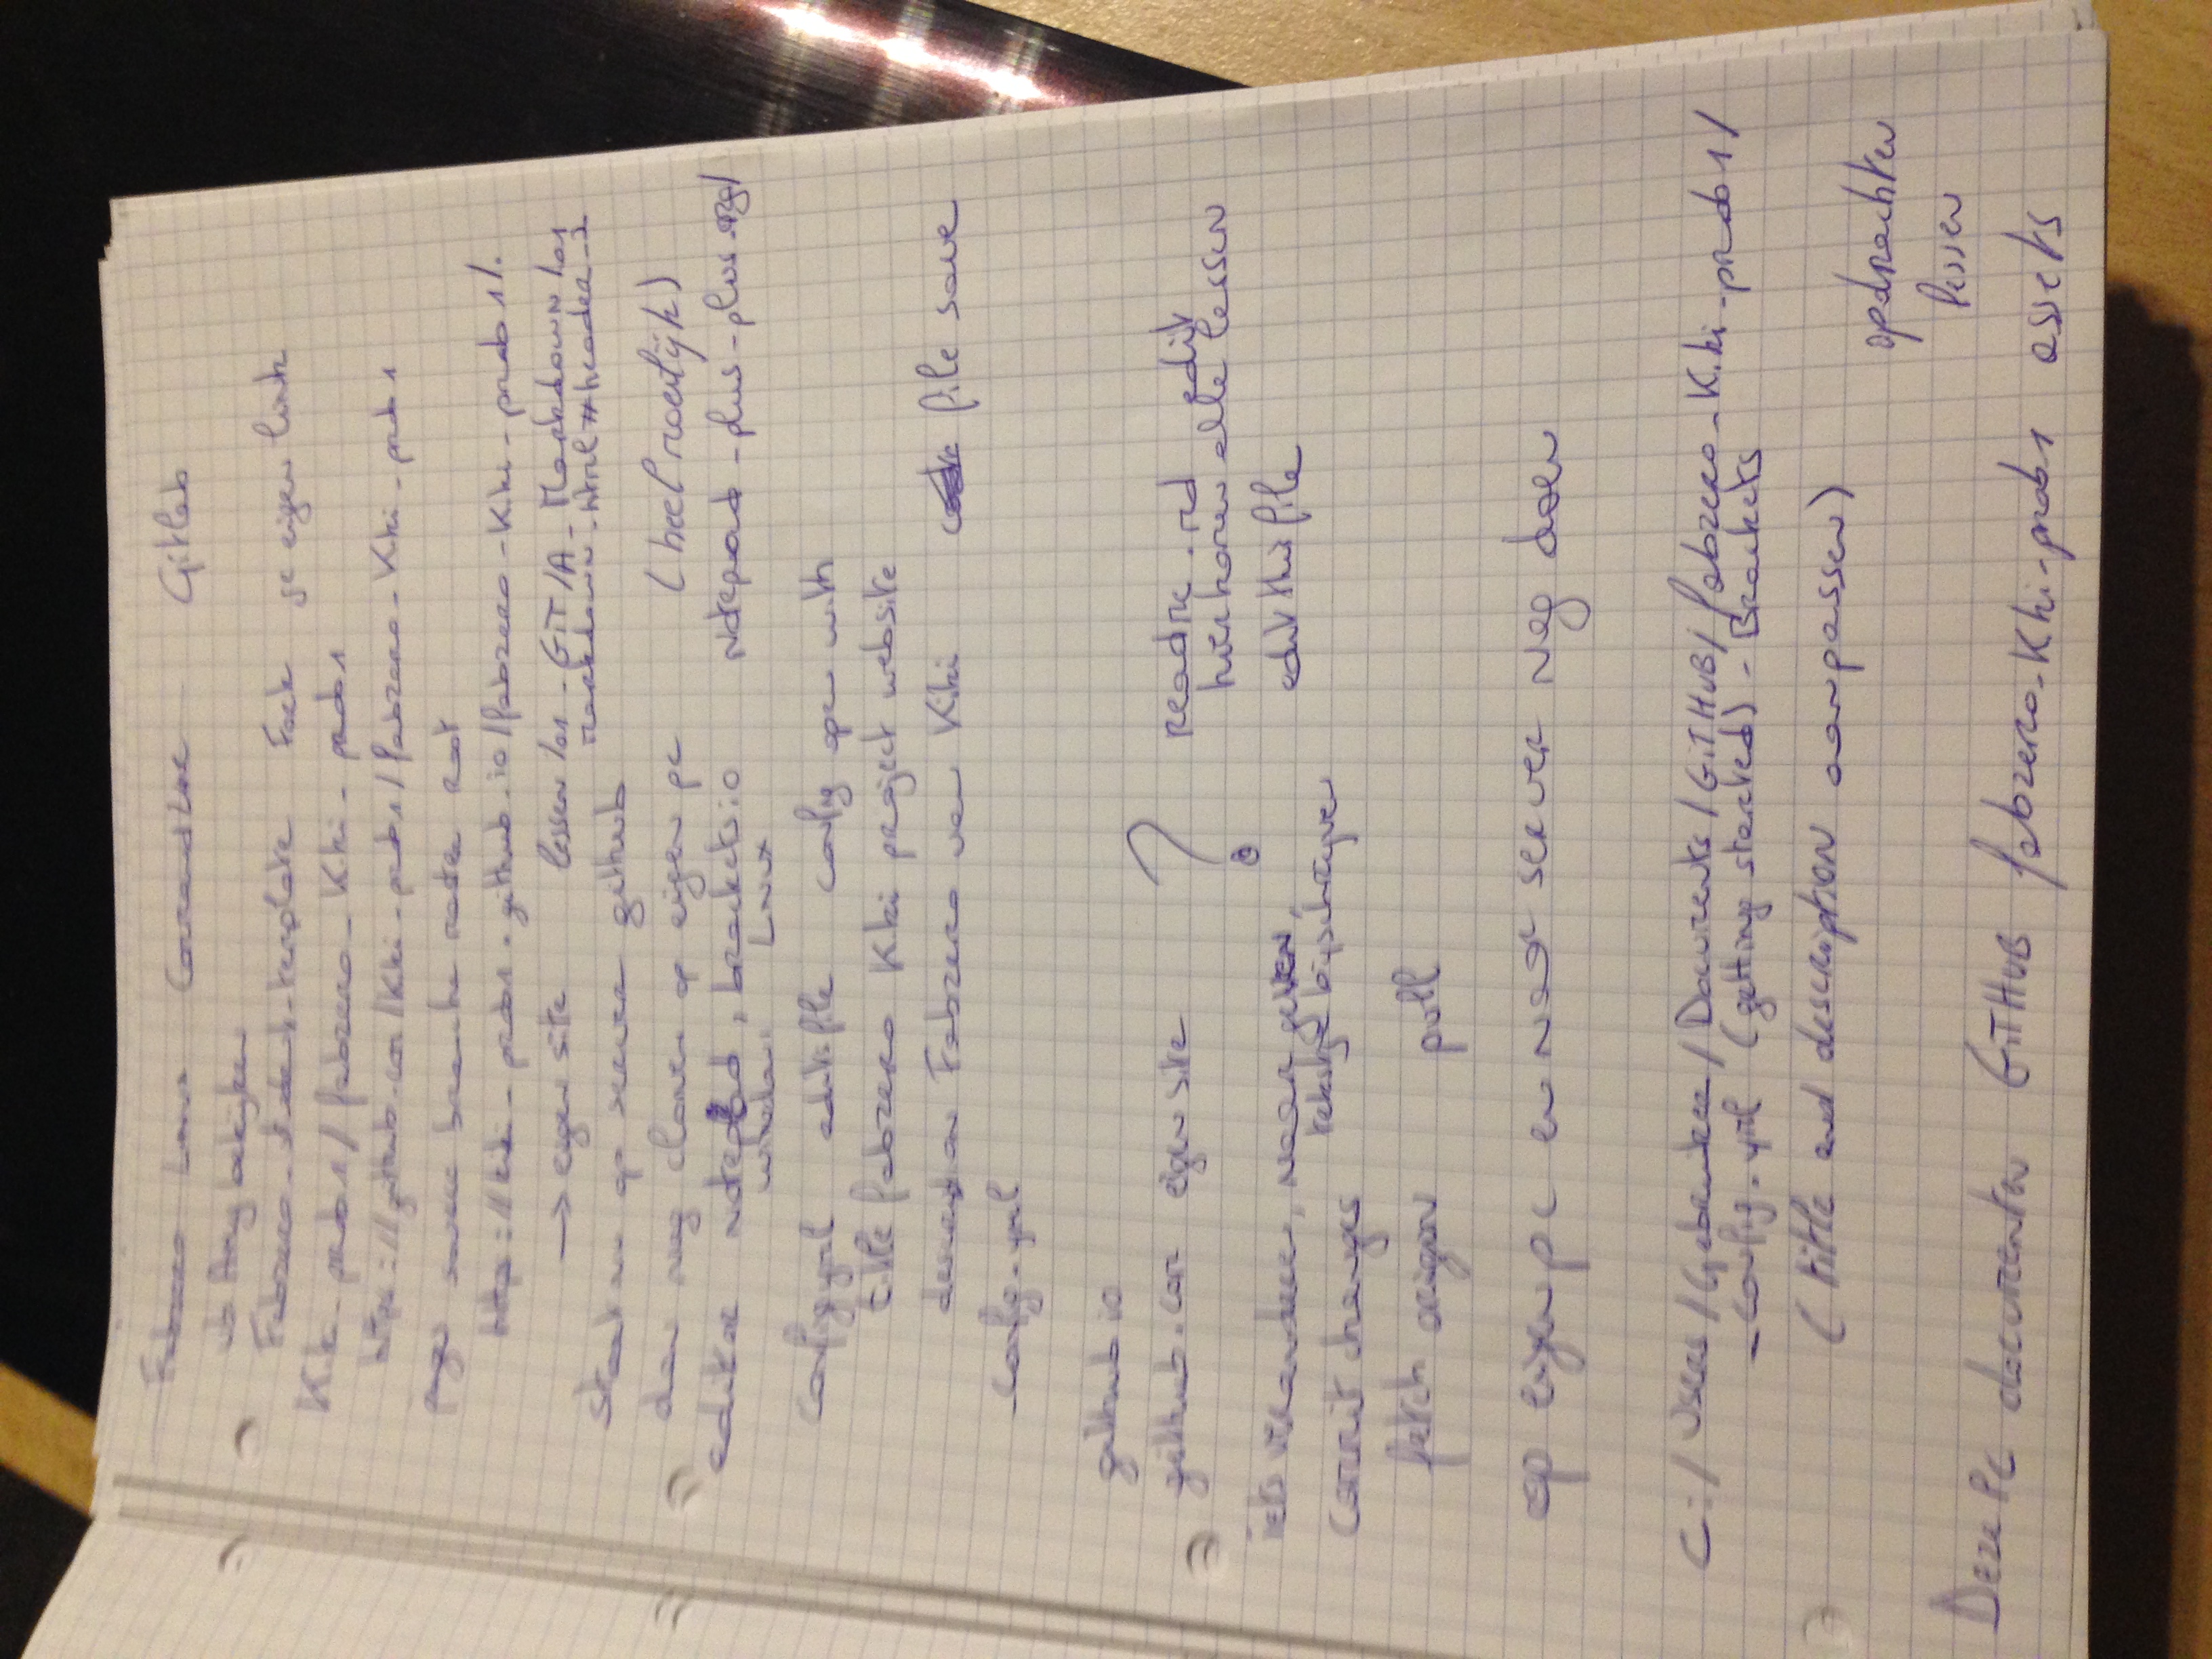 Fabzero Linux Command Line Gitlab
Amy bekijken
Fabzero-student-template Fork je eigen link
Kiki-prabs1/fabzero-Kiki-prabs1
https://github.com/Kiki-prabs1/fabzero-Kiki-prabs1
source branche master root
https://kiki-prabs1.github.io/fabzero-Kiki-prabs1/.
→ eigen site lessen/01-GIT/A-Markdown/01
markdown.html#header-2
Staat nu op server github
dan nog clonen op eigen pc (heel moeilijk)
editor Notepad, brackets.io Notepad-plus-plus.org/
windows Linux
config.yml edit file config open with
title fabzero Kiki project website
Fabzero van Kiki file save
_config.yml
github io
github.com eigen site ? readme.md edit
hier komen alle lessen
iets veranderen, naam geven, edit this file
tekstje bijschrijven
commit changes
fetch origin pull
op eigen pc en naar server nog doen
C:/Users/Gebruiker/Documents/GITHUB/fabzero-Kiki-prabs1/
_config.yml (getting started) - Brackets
(title and description aanpassen)
opdrachten
lessen
Deze PC documenten GITHUB fabzero-Kiki-prabs1 assets